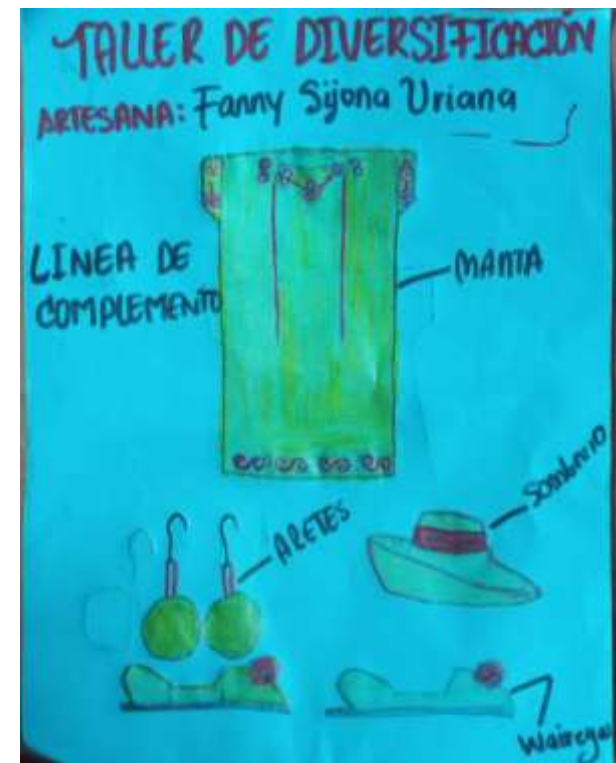 TALLER DE DIVERSIFICACIÓN
ARTESANA: Fanny Sijona Uriana
LINEA DE
COMPLEMENTO
MANTA
ARETES
Sombrero